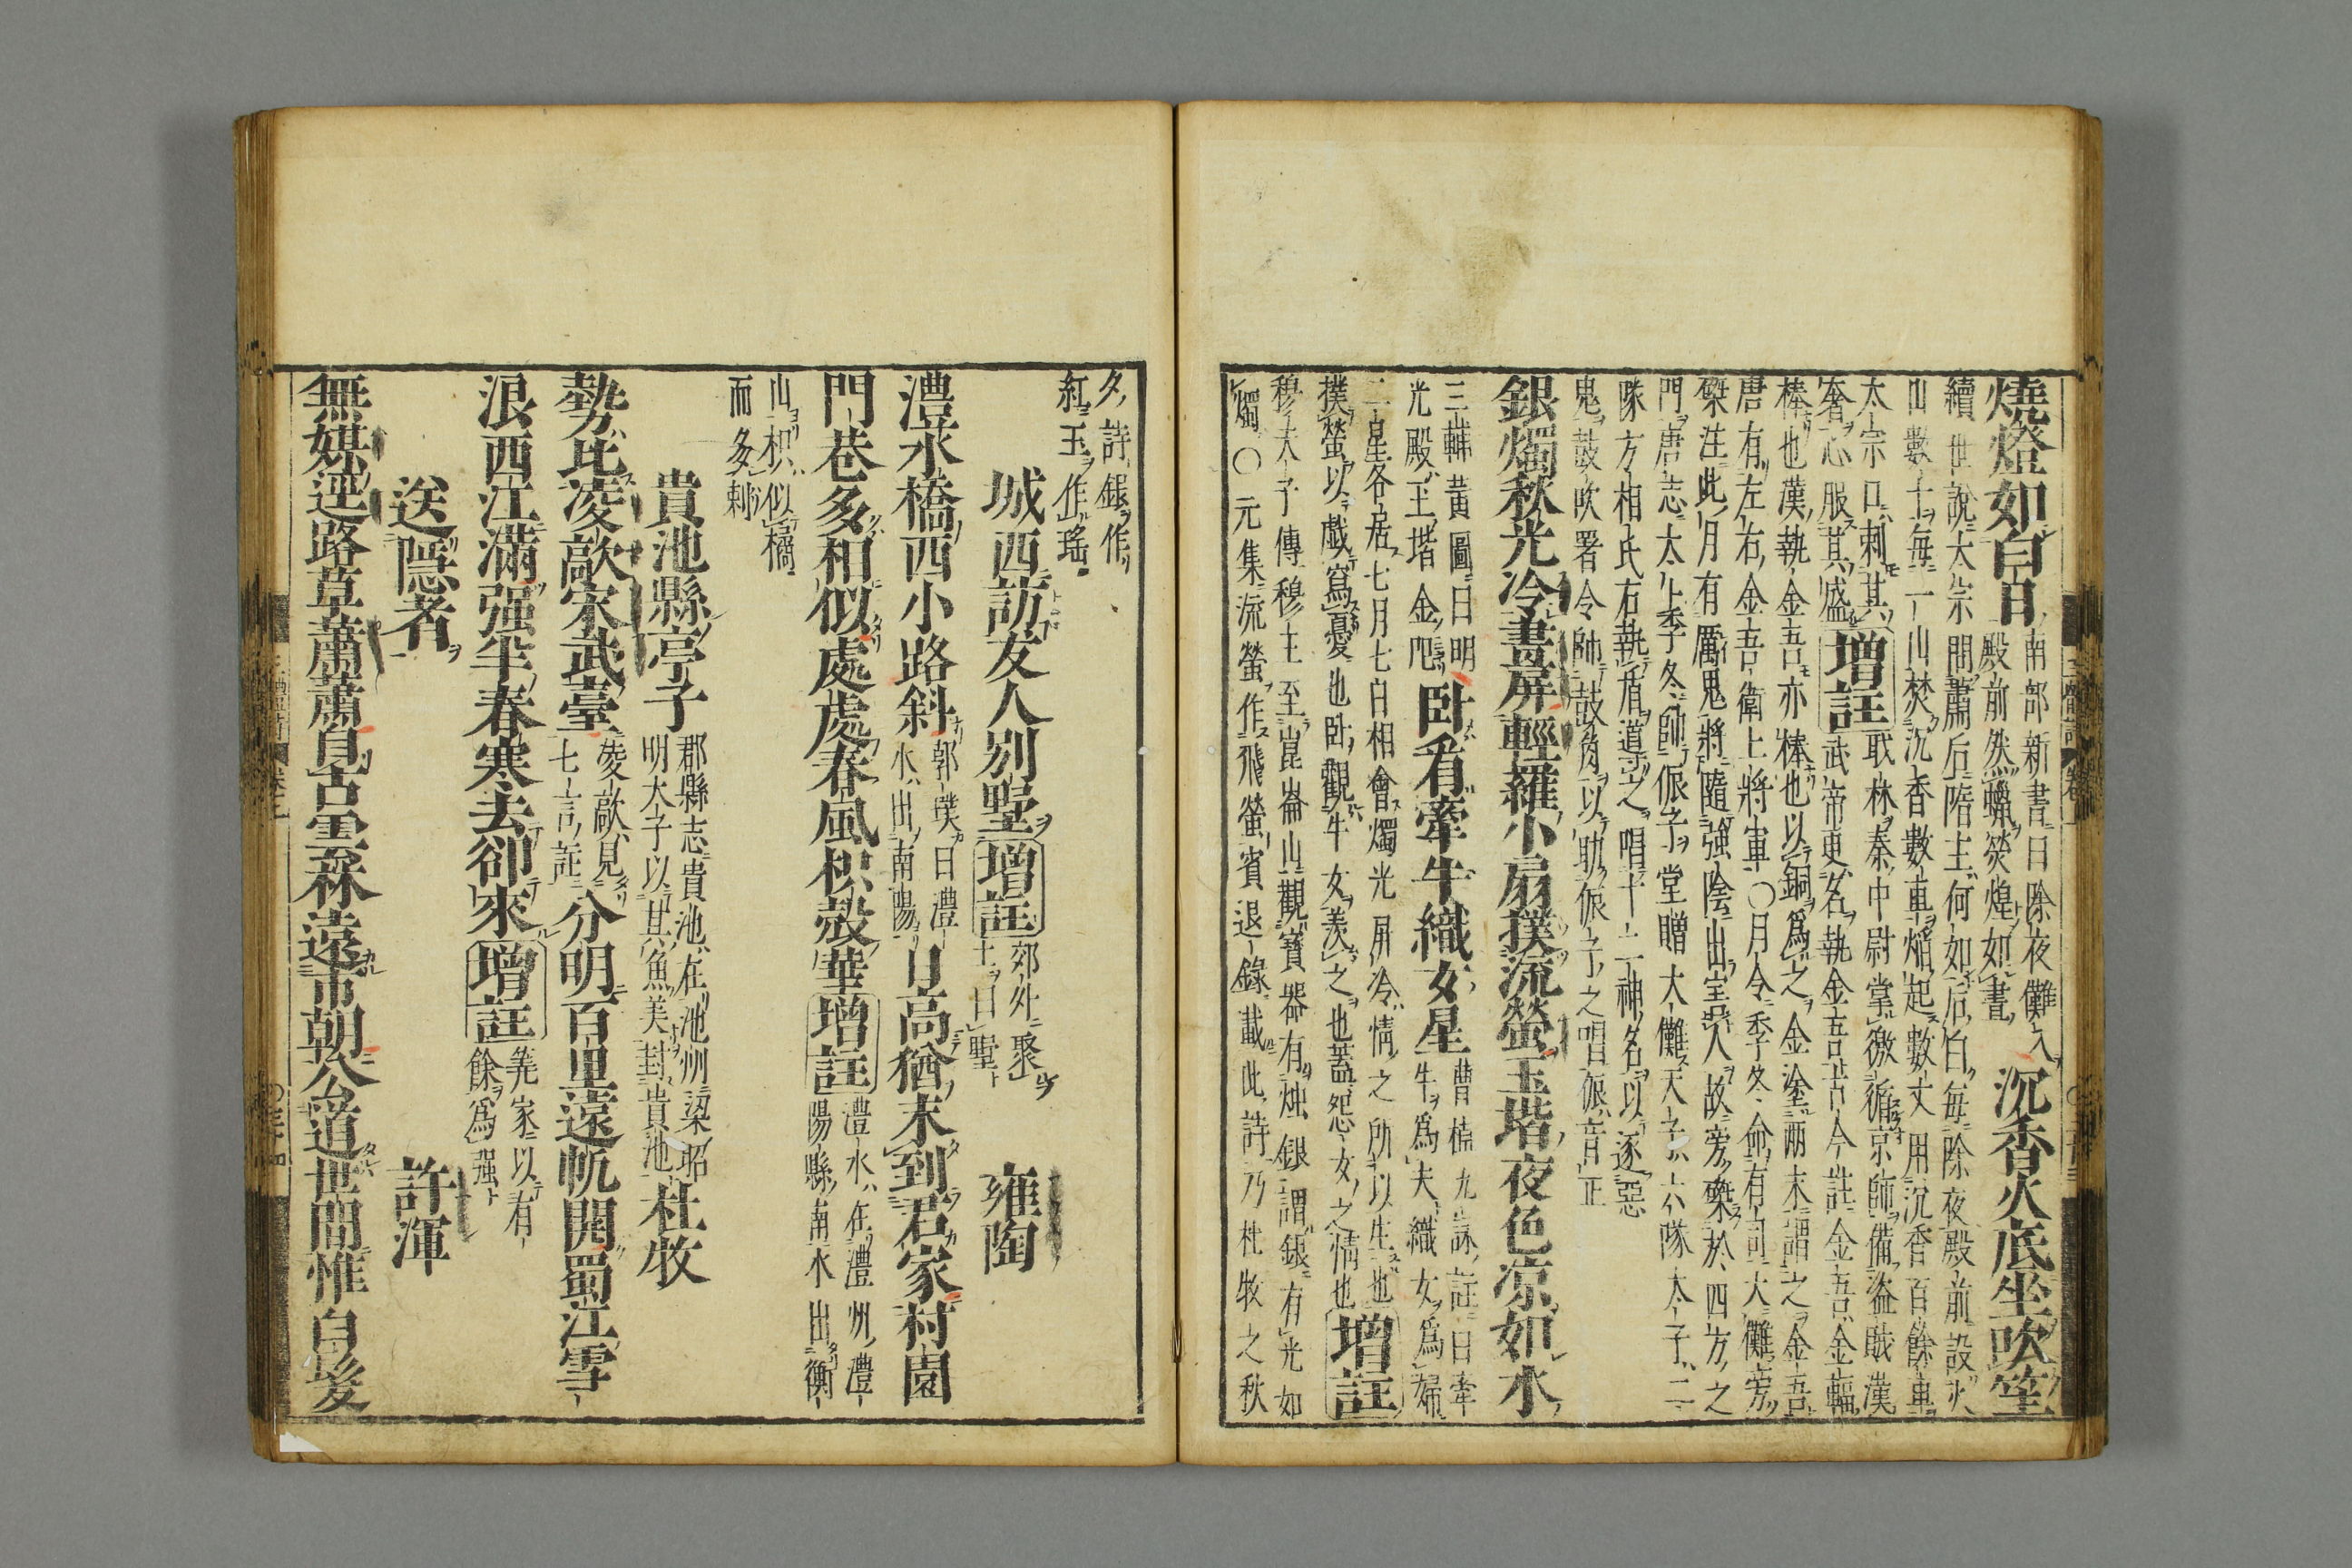 燒燈如白日南部新書曰除夜儺入殿前然蠟熒煌如晝沉香火底坐吹笙
續世說太宗問蕭后隋主何如后白毎除夜殿前設火
山數十毎一山焚沉香數車焰起數丈用沉香百餘車
太宗口刺其
奢心服其盛增註耿林秦中尉掌徼循京師備盜賊漢武帝更名執金吾古今註金吾金輻
棒也漢執金吾亦棒也以銅爲之金塗兩末謂之金吾
唐有左右金吾衛上將軍○月令季冬命有司大儺旁
磔注此月有厲鬼將隨強陰出害人故旁磔於四方之
門唐志太卜季冬帥侲子堂贈大儺天子六隊太子二
隊方相氏右執盾導之唱十二神名以逐惡
鬼鼓吹署令帥鼓角以助侲子之唱侲音正
銀燭秋光冷畫屏輕羅小扇撲流螢玉堦夜色凉如水
三輔黃圖曰明光殿玉堦金戺臥看牽牛織女星曹植九詠註曰牽牛爲夫織女爲婦
二星各居七月七日相會燭光屏冷情之所以生也
撲螢以戲寫憂也卧觀牛女羨之也蓋怨女之情也增註
穆天子傳穆王至崑崙山觀寶器有燭銀謂銀有光如
燭○元集流螢作飛螢賓退錄載此詩乃杜牧之秋
夕詩銀作
紅玉作瑤
城西訪友人別墅增註郊外聚土曰墅雍陶
澧水橋西小路斜郭璞曰澧水出南陽日高猶未到君家村園
門巷多相似處處春風枳殼華增註澧水在澧州澧陽縣南水出衡
山枳似橘
而多刺
貴池縣亭子郡縣志貴池在池州梁昭明太子以其魚美封貴池杜牧
勢比凌歊宋武臺凌歊見七言註分明百里遠帆開蜀江雪
浪西江滿强半春寒去卻來增註筭家以有餘爲强
送隱者許渾
無媒逕路草蕭蕭自古雲林遠市朝公道世間惟白髮